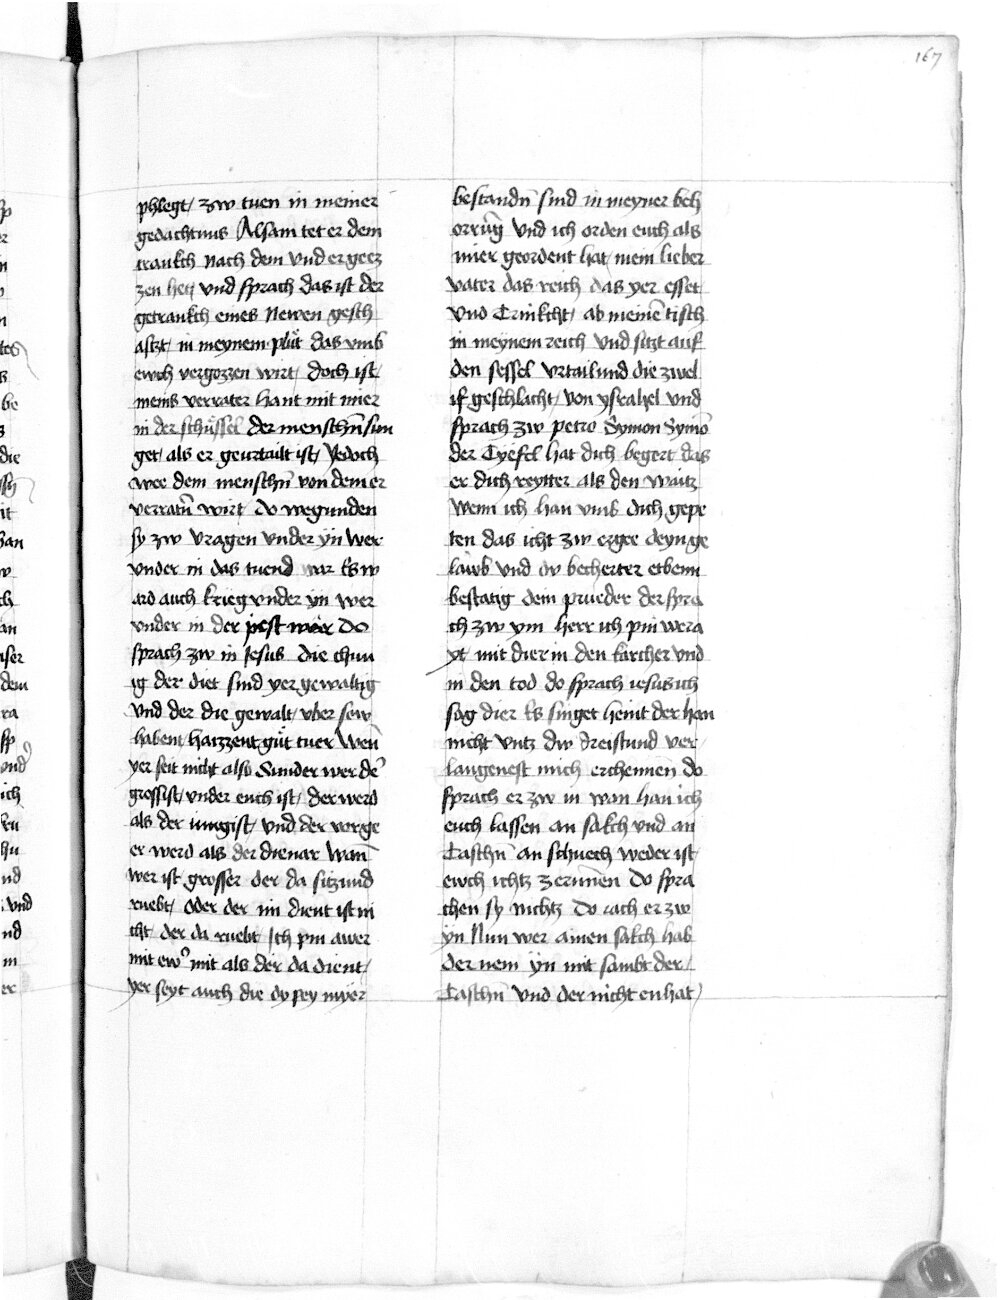 167
phlegt / zw tuen in meiner
gedachtnus Alsam tet er dem
trankch nach dem und er gecz
zen het und sprach das ist der
getrankch eines Newen gesch
afzt / in meynem plut das umb
ewch vergozzen wirt / doch ist
meins verrater hant mit mier
in der schüssel der menschn̄ sun
get / als er geurtailt ist / Yedoch
wee dem menschn̄ von dem er
verratn̄ wirt do wegunden
sy zw vragen vnder yn wer
vnder in das tuend war Es w
ard auch krieg vnder yn wer
vnder in der pest wær Do
sprach zw in Jesus die chun
ig der diet sind yer gewaltig
vnd der die gewalt / vber sew
habent / haizzent güt tuer Wen̄
yer seit nicht also Sunder wer dē
grossist / vnder euch ist / der werd
als der iungist / vnd der vorge
er werd als der dienar wan̄
wer ist grosser der da sitzund
ruebt / oder der im dient ist ni
cht der da ruebt Ich pin awer
mit ew mit als der da dient /
yer seyt auch die do pey myer
bestandn̄ sind in meyner bech
orrūg vnd ich orden euch als
mier geordent hat mein lieber
vater das reich das yer esset
vnd Trinkcht / ab meinē tisch
in meynem reich vnd sitzt auf
den sessel vrtailund die zwel
if geschlacht / von ysrahel vnd
sprach zw petro Symon Symō
der Tyefel hat dich begert das
er dich reytter als den waitz
wenn ich han vmb dich gepe
ten das icht zw ergee deyn ge
lawb vnd dw becherter etbenn
bestatig dein prueder der spra
ch zw ym herr ich pin wera
yt mit dier in den karcher vnd
in den tod do sprach iesus ich
sag dier Es singet heint der han
nicht vntz dw dreistund ver
laugenest mich erchennen do
sprach er zw in wan han ich
euch lassen an sakch vnd an
Taschn̄ an schuech weder ist
ewch ichtz zerunnen Do spra
chen sy nichtz Do rach er zw
yn Nun wer ainen sakch hab
der nem yn mit sambt der
Taschn̄ vnd der nicht en hat /